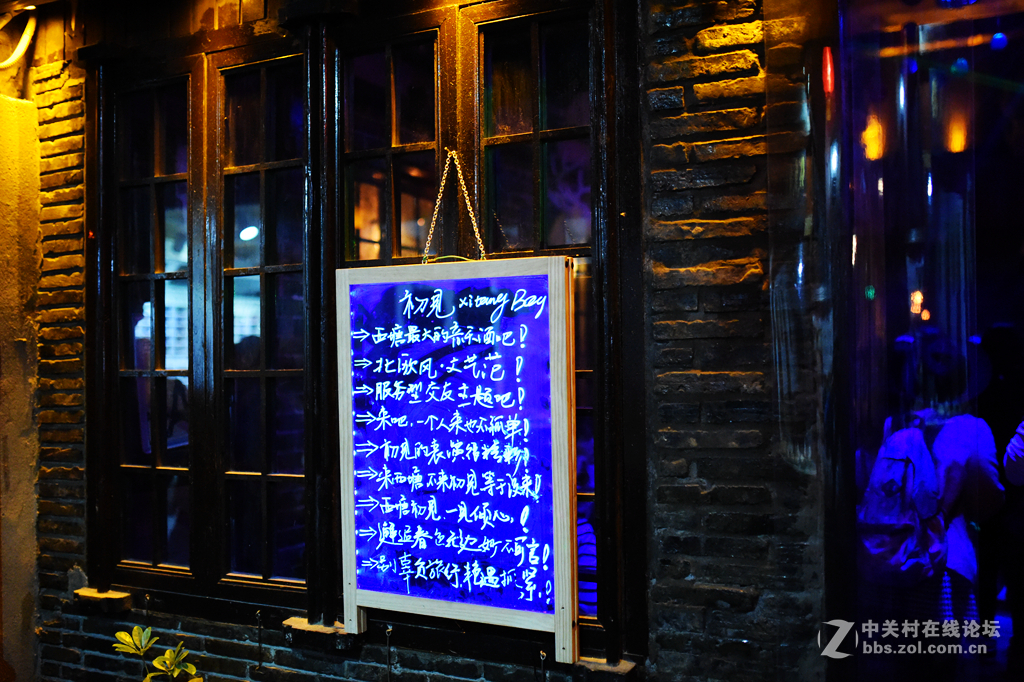 初见 xitang Bay
⇒西塘最大的音乐酒吧!
⇒北欧风·文艺范!
⇒服务型交友主题吧!
⇒来吧,一个人来也不孤单!
⇒初见的表演很精彩!
⇒来西塘不来初见等于没来!
⇒西塘初见,一见倾心,!
⇒邂逅春色无边妙不可言!
⇒别辜负旅行,艳遇抓紧!
中关村在线论坛
bbs.zol.com.cn